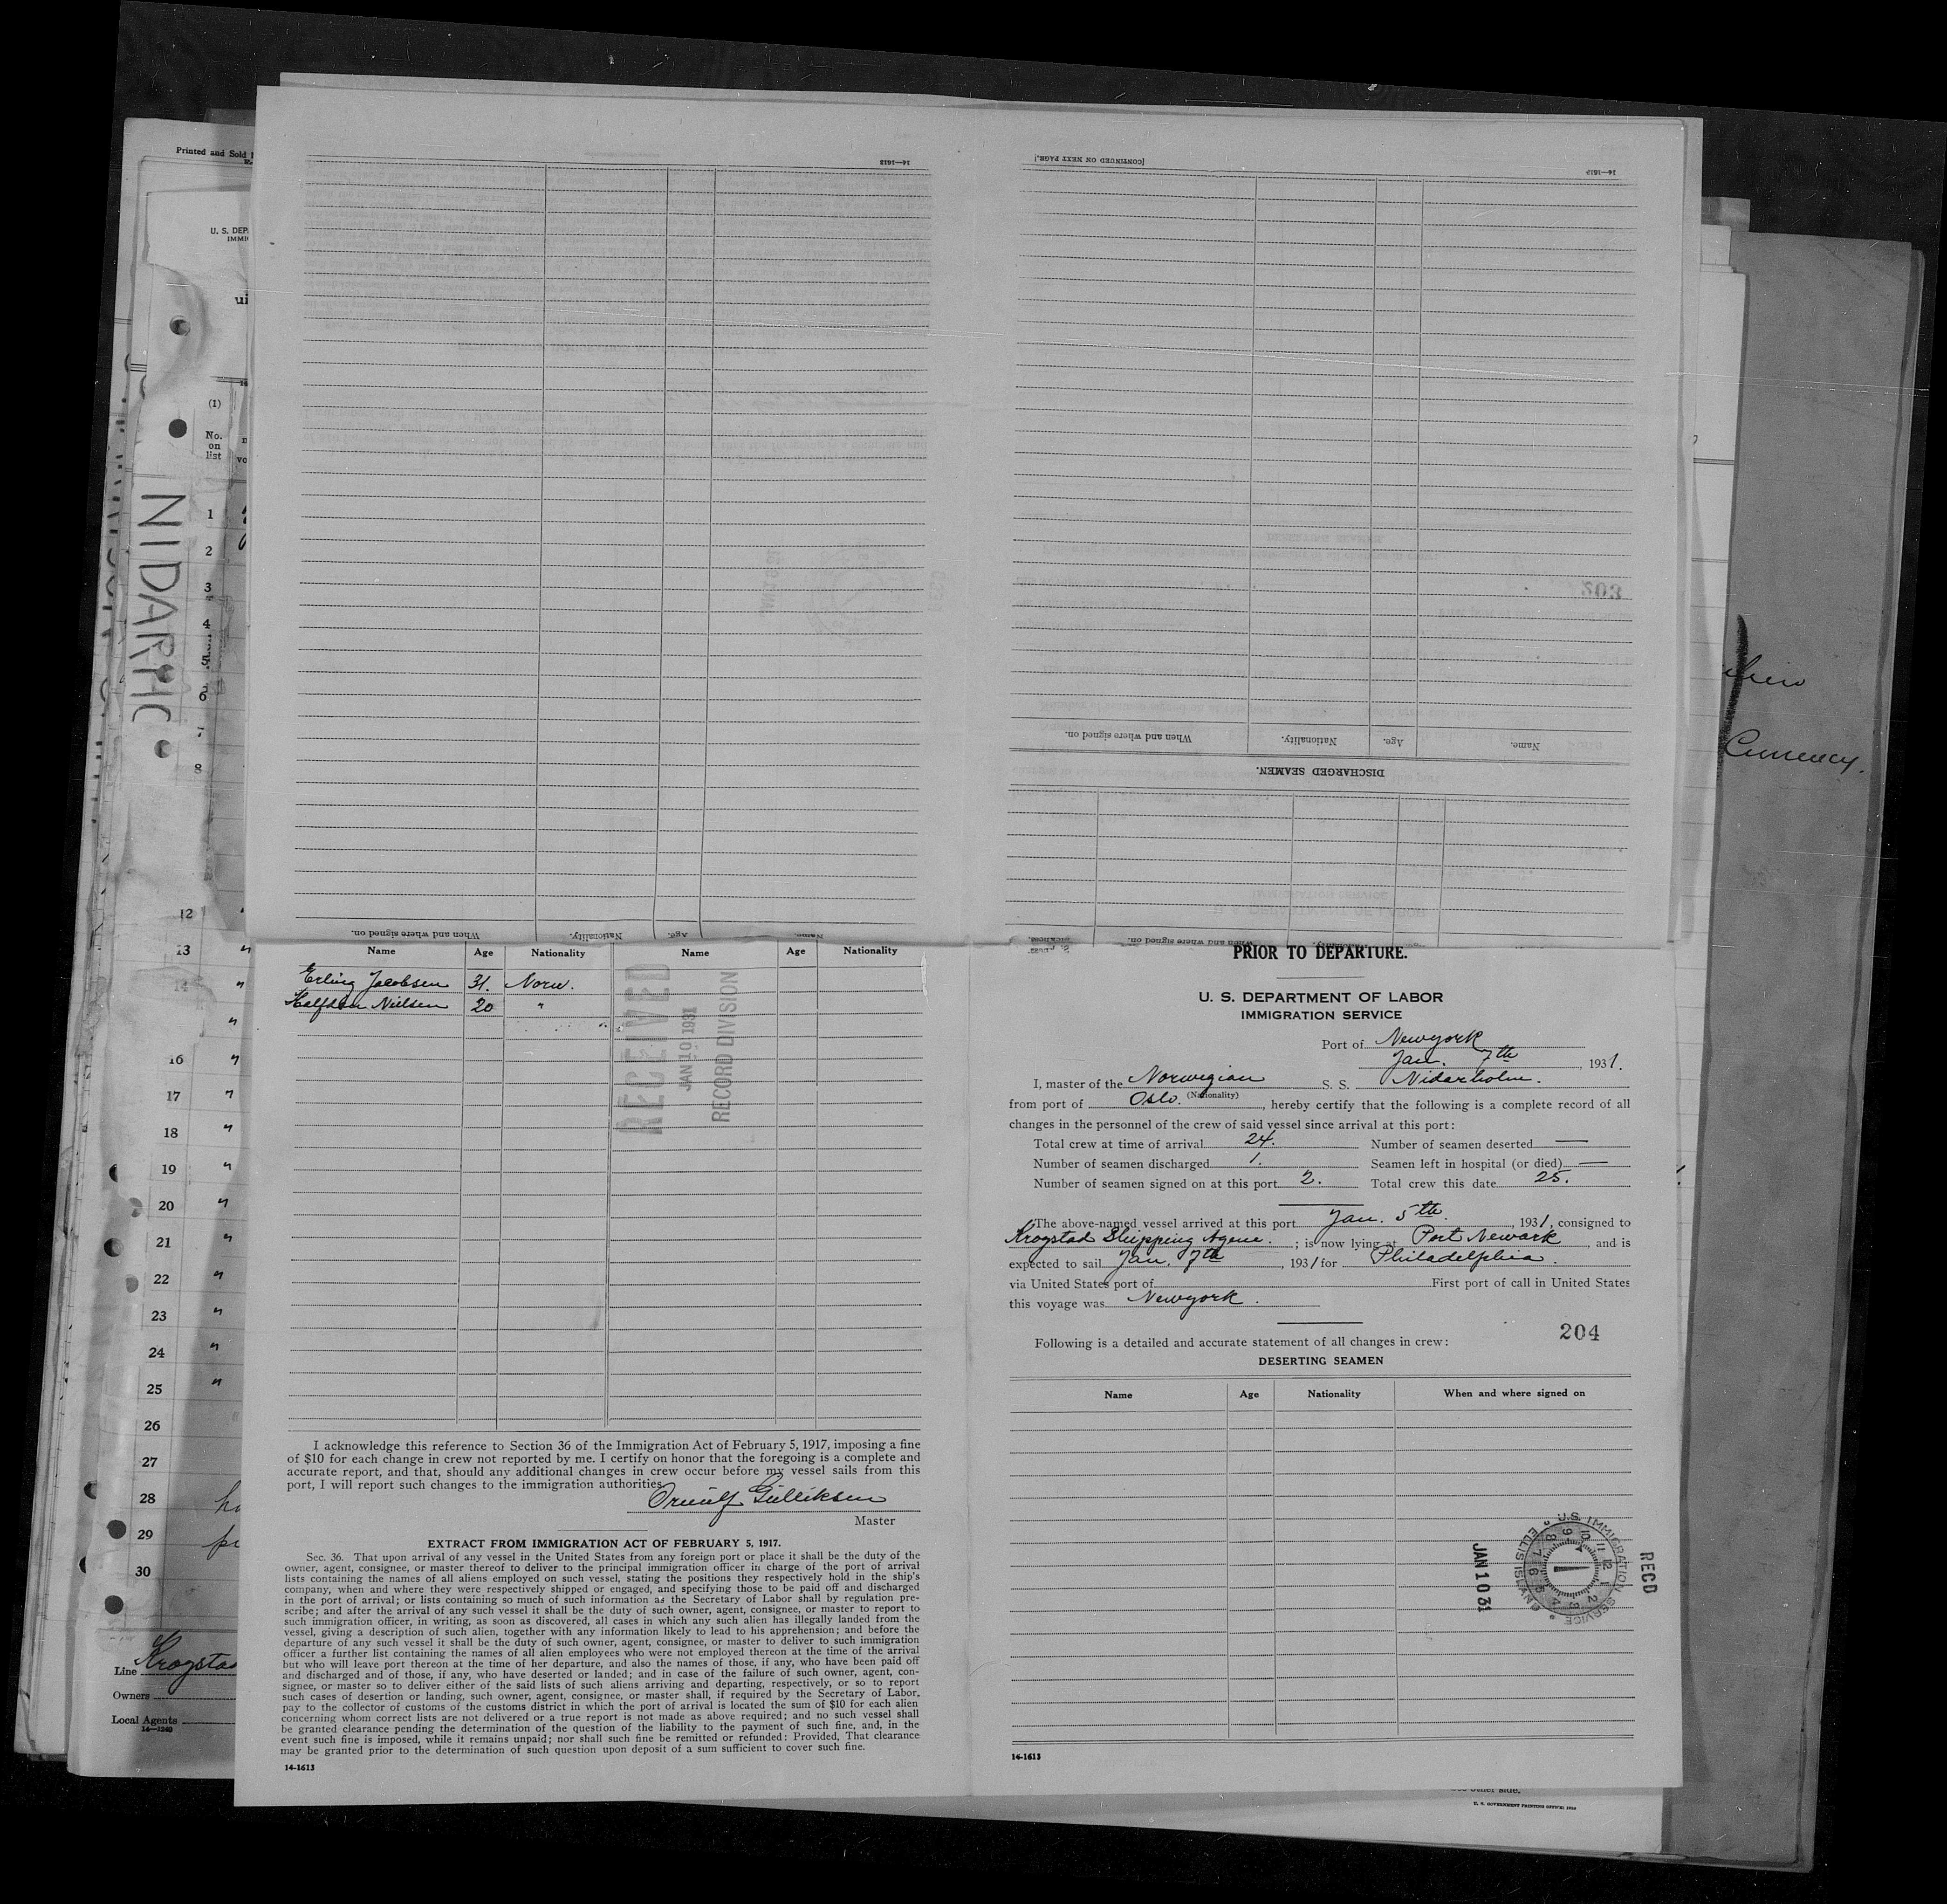 Printed and Sold
U. S. DEP
IMMI
(1)
No.
on
list
NIDARHC
1
2
3
4
5
6
7
8
12
13 "
14 "
"
16 "
17 "
18 "
19 "
20 "
21 "
22 "
23 "
24 "
25 "
26
27
28
29
30
Line Krogsta
Owners
Local Agents
14—1240
14—1613
[CONTINUED ON NEXT PAGE.]
14—1613
303
When and where signed on. Nationality. Age. Name.
DISCHARGED SEAMEN.
When and where signed on. Nationality. Age. Name.
When and where signed on. Nationality.
Name Age Nationality Name Age Nationality
Erling Jacobsen 31. Norw.
Halfdan Nielsen 20 "
RECEIVED
JAN 10 1931
RECORD DIVISION
I acknowledge this reference to Section 36 of the Immigration Act of February 5, 1917, imposing a fine
of $10 for each change in crew not reported by me. I certify on honor that the foregoing is a complete and
accurate report, and that, should any additional changes in crew occur before my vessel sails from this
port, I will report such changes to the immigration authorities.
Gulliksen
Master
EXTRACT FROM IMMIGRATION ACT OF FEBRUARY 5, 1917.
Sec. 36. That upon arrival of any vessel in the United States from any foreign port or place it shall be the duty of the
owner, agent, consignee, or master thereof to deliver to the principal immigration officer in charge of the port of arrival
lists containing the names of all aliens employed on such vessel, stating the positions they respectively hold in the ship's
company, when and where they were respectively shipped or engaged, and specifying those to be paid off and discharged
in the port of arrival; or lists containing so much of such information as the Secretary of Labor shall by regulation pre-
scribe; and after the arrival of any such vessel it shall be the duty of such owner, agent, consignee, or master to report to
such immigration officer, in writing, as soon as discovered, all cases in which any such alien has illegally landed from the
vessel, giving a description of such alien, together with any information likely to lead to his apprehension; and before the
departure of any such vessel it shall be the duty of such owner, agent, consignee, or master to deliver to such immigration
officer a further list containing the names of all alien employees who were not employed thereon at the time of the arrival
but who will leave port thereon at the time of her departure, and also the names of those, if any, who have been paid off
and discharged and of those, if any, who have deserted or landed; and in case of the failure of such owner, agent, con-
signee, or master so to deliver either of the said lists of such aliens arriving and departing, respectively, or so to report
such cases of desertion or landing, such owner, agent, consignee, or master shall, if required by the Secretary of Labor,
pay to the collector of customs of the customs district in which the port of arrival is located the sum of $10 for each alien
concerning whom correct lists are not delivered or a true report is not made as above required; and no such vessel shall
be granted clearance pending the determination of the question of the liability to the payment of such fine, and, in the
event such fine is imposed, while it remains unpaid; nor shall such fine be remitted or refunded: Provided, That clearance
may be granted prior to the determination of such question upon deposit of a sum sufficient to cover such fine.
14-1613
PRIOR TO DEPARTURE.
U. S. DEPARTMENT OF LABOR
IMMIGRATION SERVICE
Port of Newyork
Jan. 7th, 1931.
I, master of the Norwegian S. S. Nidarholm.
(Nationality)
from port of Oslo., hereby certify that the following is a complete record of all
changes in the personnel of the crew of said vessel since arrival at this port:
Total crew at time of arrival 24. Number of seamen deserted —
Number of seamen discharged 1. Seamen left in hospital (or died) —
Number of seamen signed on at this port 2. Total crew this date 25.
The above-named vessel arrived at this port Jan. 5th., 1931, consigned to
Krogstad Shipping Agenc.; is now lying at Port Newark, and is
expected to sail Jan. 7th, 1931 for Philadelphia.
via United States port of First port of call in United States
this voyage was Newyork.
204
Following is a detailed and accurate statement of all changes in crew:
DESERTING SEAMEN
Name Age Nationality When and where signed on
JAN 10 31
U.S. IMMIGRATION SERVICE ELLIS ISLAND
RECD
14-1613
Currency.
see other side.
U. S. GOVERNMENT PRINTING OFFICE: